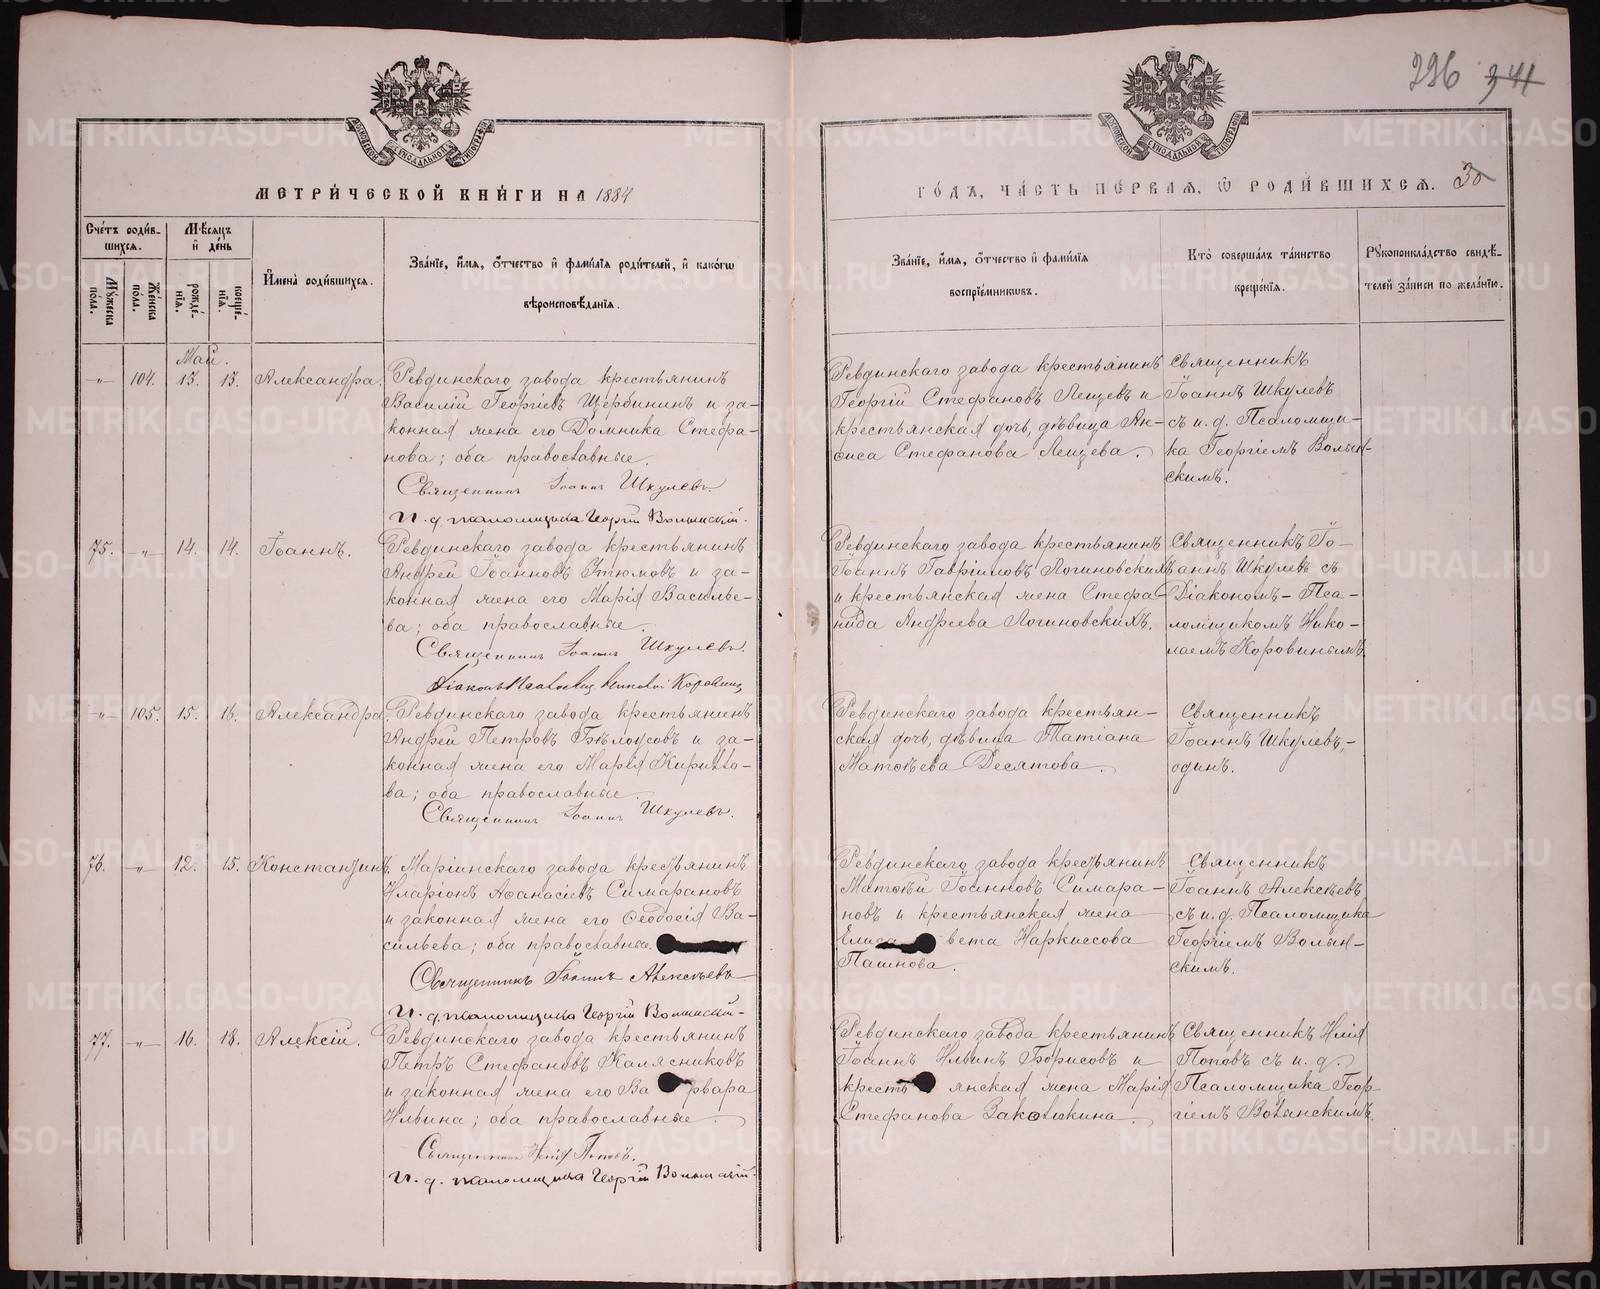 296 341
МОСКОВСКОЙ СѴНОДАЛЬНОЙ ТИПОГРАФІИ
МОСКОВСКОЙ СѴНОДАЛЬНОЙ ТИПОГРАФІИ
МЕТРИ́ЧЕСКОЙ КНИ́ГИ НА 1884
ГО́ДЪ, ЧА́СТЬ ПЕ́РВАЯ, Ѡ РОДИ́ВШИХСЯ. 30
Сче́тъ роди́в-
шихся.
Му́жеска пола.
Же́нска пола.
Мѣ́сяцъ и де́нь
рожде́-
нїя.
креще́-
нїя.
И҆мена̀ роди́вшихся.
Зва́нїе, и҆́мя, ѻ҆́тчество и҆ фами́лїя роди́телей, и҆ како́гѡ
вѣроисповѣ́данїя.
Зва́нїе, и҆́мя, ѻ҆́тчество и҆ фами́лїя
воспрїе́мникѡвъ.
Кто̀ соверша́лъ та́инство
креще́нїя.
Рꙋкоприкла́дство свидѣ́-
телей за́писи по жела́нїю.
Май.
-"- 104. 13. 13. Александра.
Ревдинскаго завода крестьянинъ
Василій Георгіевъ Щербининъ и за-
конная жена его Домника Стефа-
нова; оба православные.
Священникъ Іоаннъ Шкулевъ.
И. д. псаломщика Георгій Волынскій.
Ревдинскаго завода крестьянинъ
Георгій Стефановъ Лещевъ и
крестьянская дочь, дѣвица Ан-
фиса Стефанова Лещева.
Священникъ
Іоаннъ Шкулевъ
съ и. д. Псаломщи-
ка Георгіемъ Волын-
скимъ.
75. -"- 14. 14. Іоаннъ.
Ревдинскаго завода крестьянинъ
Андрей Іоанновъ Утюмовъ и за-
конная жена его Марія Василье-
ва; оба православные.
Священникъ Іоаннъ Шкулевъ.
Діаконъ Псаломщикъ Николай Коровинъ
Ревдинскаго завода крестьянинъ
Іоаннъ Гавріиловъ Логиновскихъ
и крестьянская жена Стефа-
нида Андреева Логиновскихъ.
Священникъ Іо-
аннъ Шкулевъ съ
Діакономъ-Пса-
ломщикомъ Нико-
лаемъ Коровинымъ.
-"- 105. 15. 16. Александра.
Ревдинскаго завода крестьянинъ
Андрей Петровъ Бѣлоусовъ и за-
конная жена его Марія Кирилло-
ва; оба православные.
Священникъ Іоаннъ Шкулевъ.
Ревдинскаго завода крестьян-
ская дочь, дѣвица Татіана
Матѳѣева Десятова.
Священникъ
Іоаннъ Шкулевъ,-
одинъ.
76. -"- 12. 15. Константинъ.
Маріинскаго завода крестьянинъ
Иларіонъ Аѳанасіевъ Симарановъ
и законная жена его Ѳеодосія Ва-
сильева; оба православные.
Священникъ Іоаннъ Алексѣевъ
И. д. псаломщика Георгій Волынскій.
Ревдинскаго завода крестьянинъ
Матѳѣй Іоанновъ Симара-
новъ и крестьянская жена
Елиза вета Наркисова
Пашнова.
Священникъ
Іоаннъ Алексѣевъ
съ и. д. Псаломщика
Георгіемъ Волын-
скимъ.
77. -"- 16. 18. Алексій.
Ревдинскаго завода крестьянинъ
Петръ Стефановъ Калясниковъ
и законная жена его Ва рвара
Ильина; оба православные.
Священникъ Илія Поповъ.
И. д. псаломщика Георгій Волынскій.
Ревдинскаго завода крестьянинъ
Іоаннъ Ильинъ Борисовъ и
кресть янская жена Марія
Стефанова Заколюкина.
Священникъ Илія
Поповъ съ и. д.
Псаломщика Геор-
гіемъ Волынскимъ.